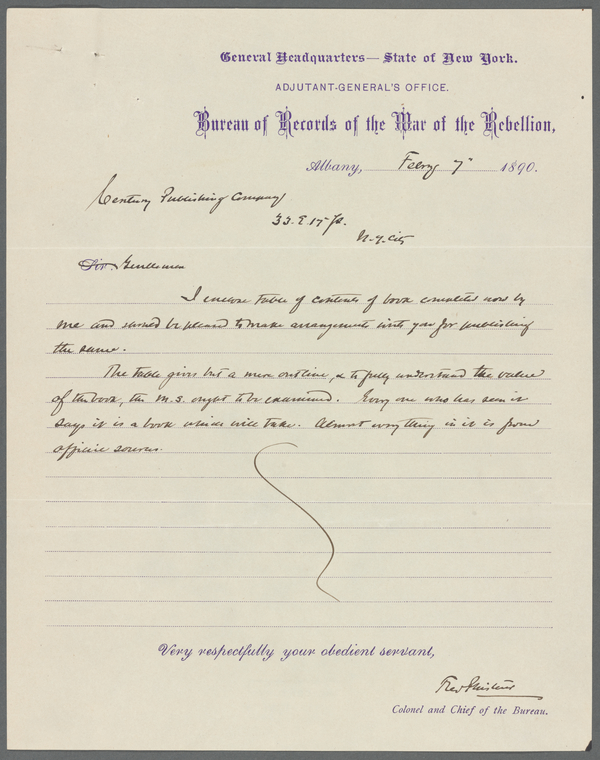 General Headquarters — State of New York.
ADJUTANT-GENERAL'S OFFICE.
Bureau of Records of the War of the Rebellion,
Albany, Febry 7" 1890.
Century Publishing Company
33. E. 17 St.
N-Y. City
Sir. Gentlemen
I enclose table of contents of book compiled by
me and would be pleased to make arrangements with you for publishing
the same.
The table gives but a mere outline, & to fully understand the value
of the book, the M.S. ought to be examined. Every one who has seen it
says it is a book which will take. Almost everything in it is from
official sources.
Very respectfully your obedient servant,
Fred Phisterer
Colonel and Chief of the Bureau.